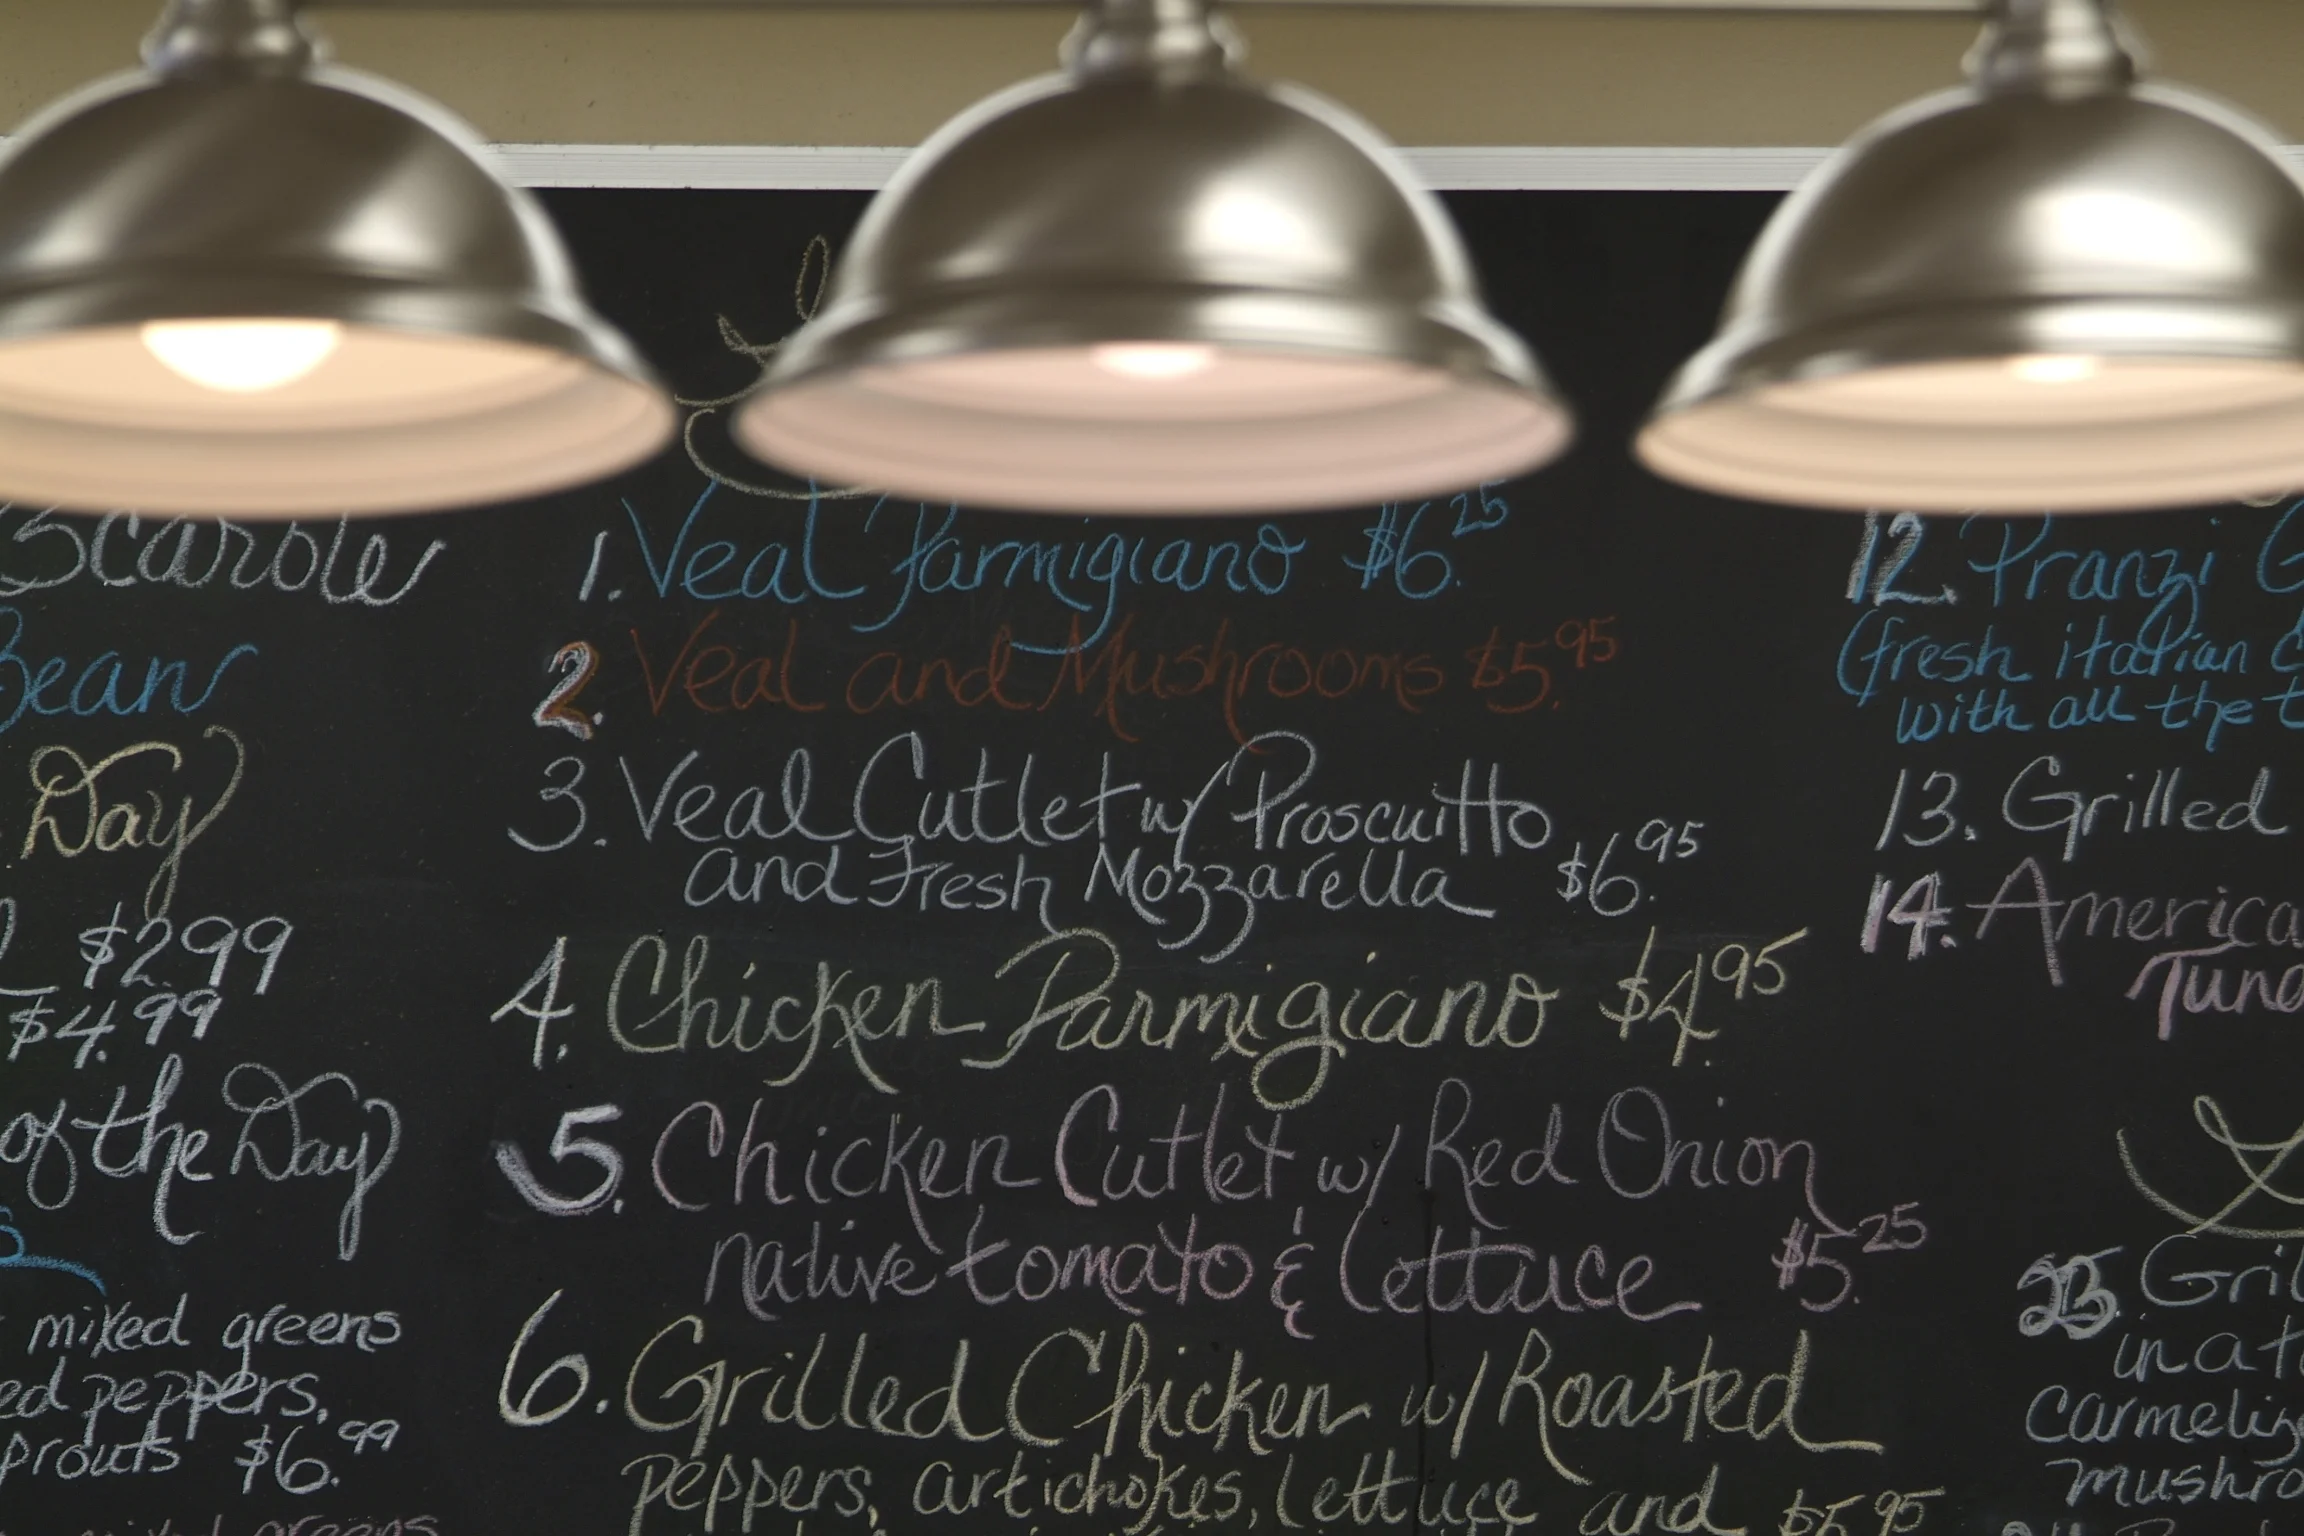 Scarole
Bean
Day
$2.99
$4.99
of the Day
mixed greens
peppers,
sprouts $6.99
mixed greens
1. Veal Parmigiano $6.25
2. Veal and Mushrooms $5.95
3. Veal Cutlet w/ Proscuitto
and Fresh Mozzarella $6.95
4. Chicken Parmigiano $4.95
5. Chicken Cutlet w/ Red Onion
native tomato & lettuce $5.25
6. Grilled Chicken w/ Roasted
peppers, artichokes, lettuce and $5.95
12. Pranzi G
(fresh italian c
with all the t
13. Grilled
14. America
Tuna
23. Gril
in a t
carmeliz
mushro